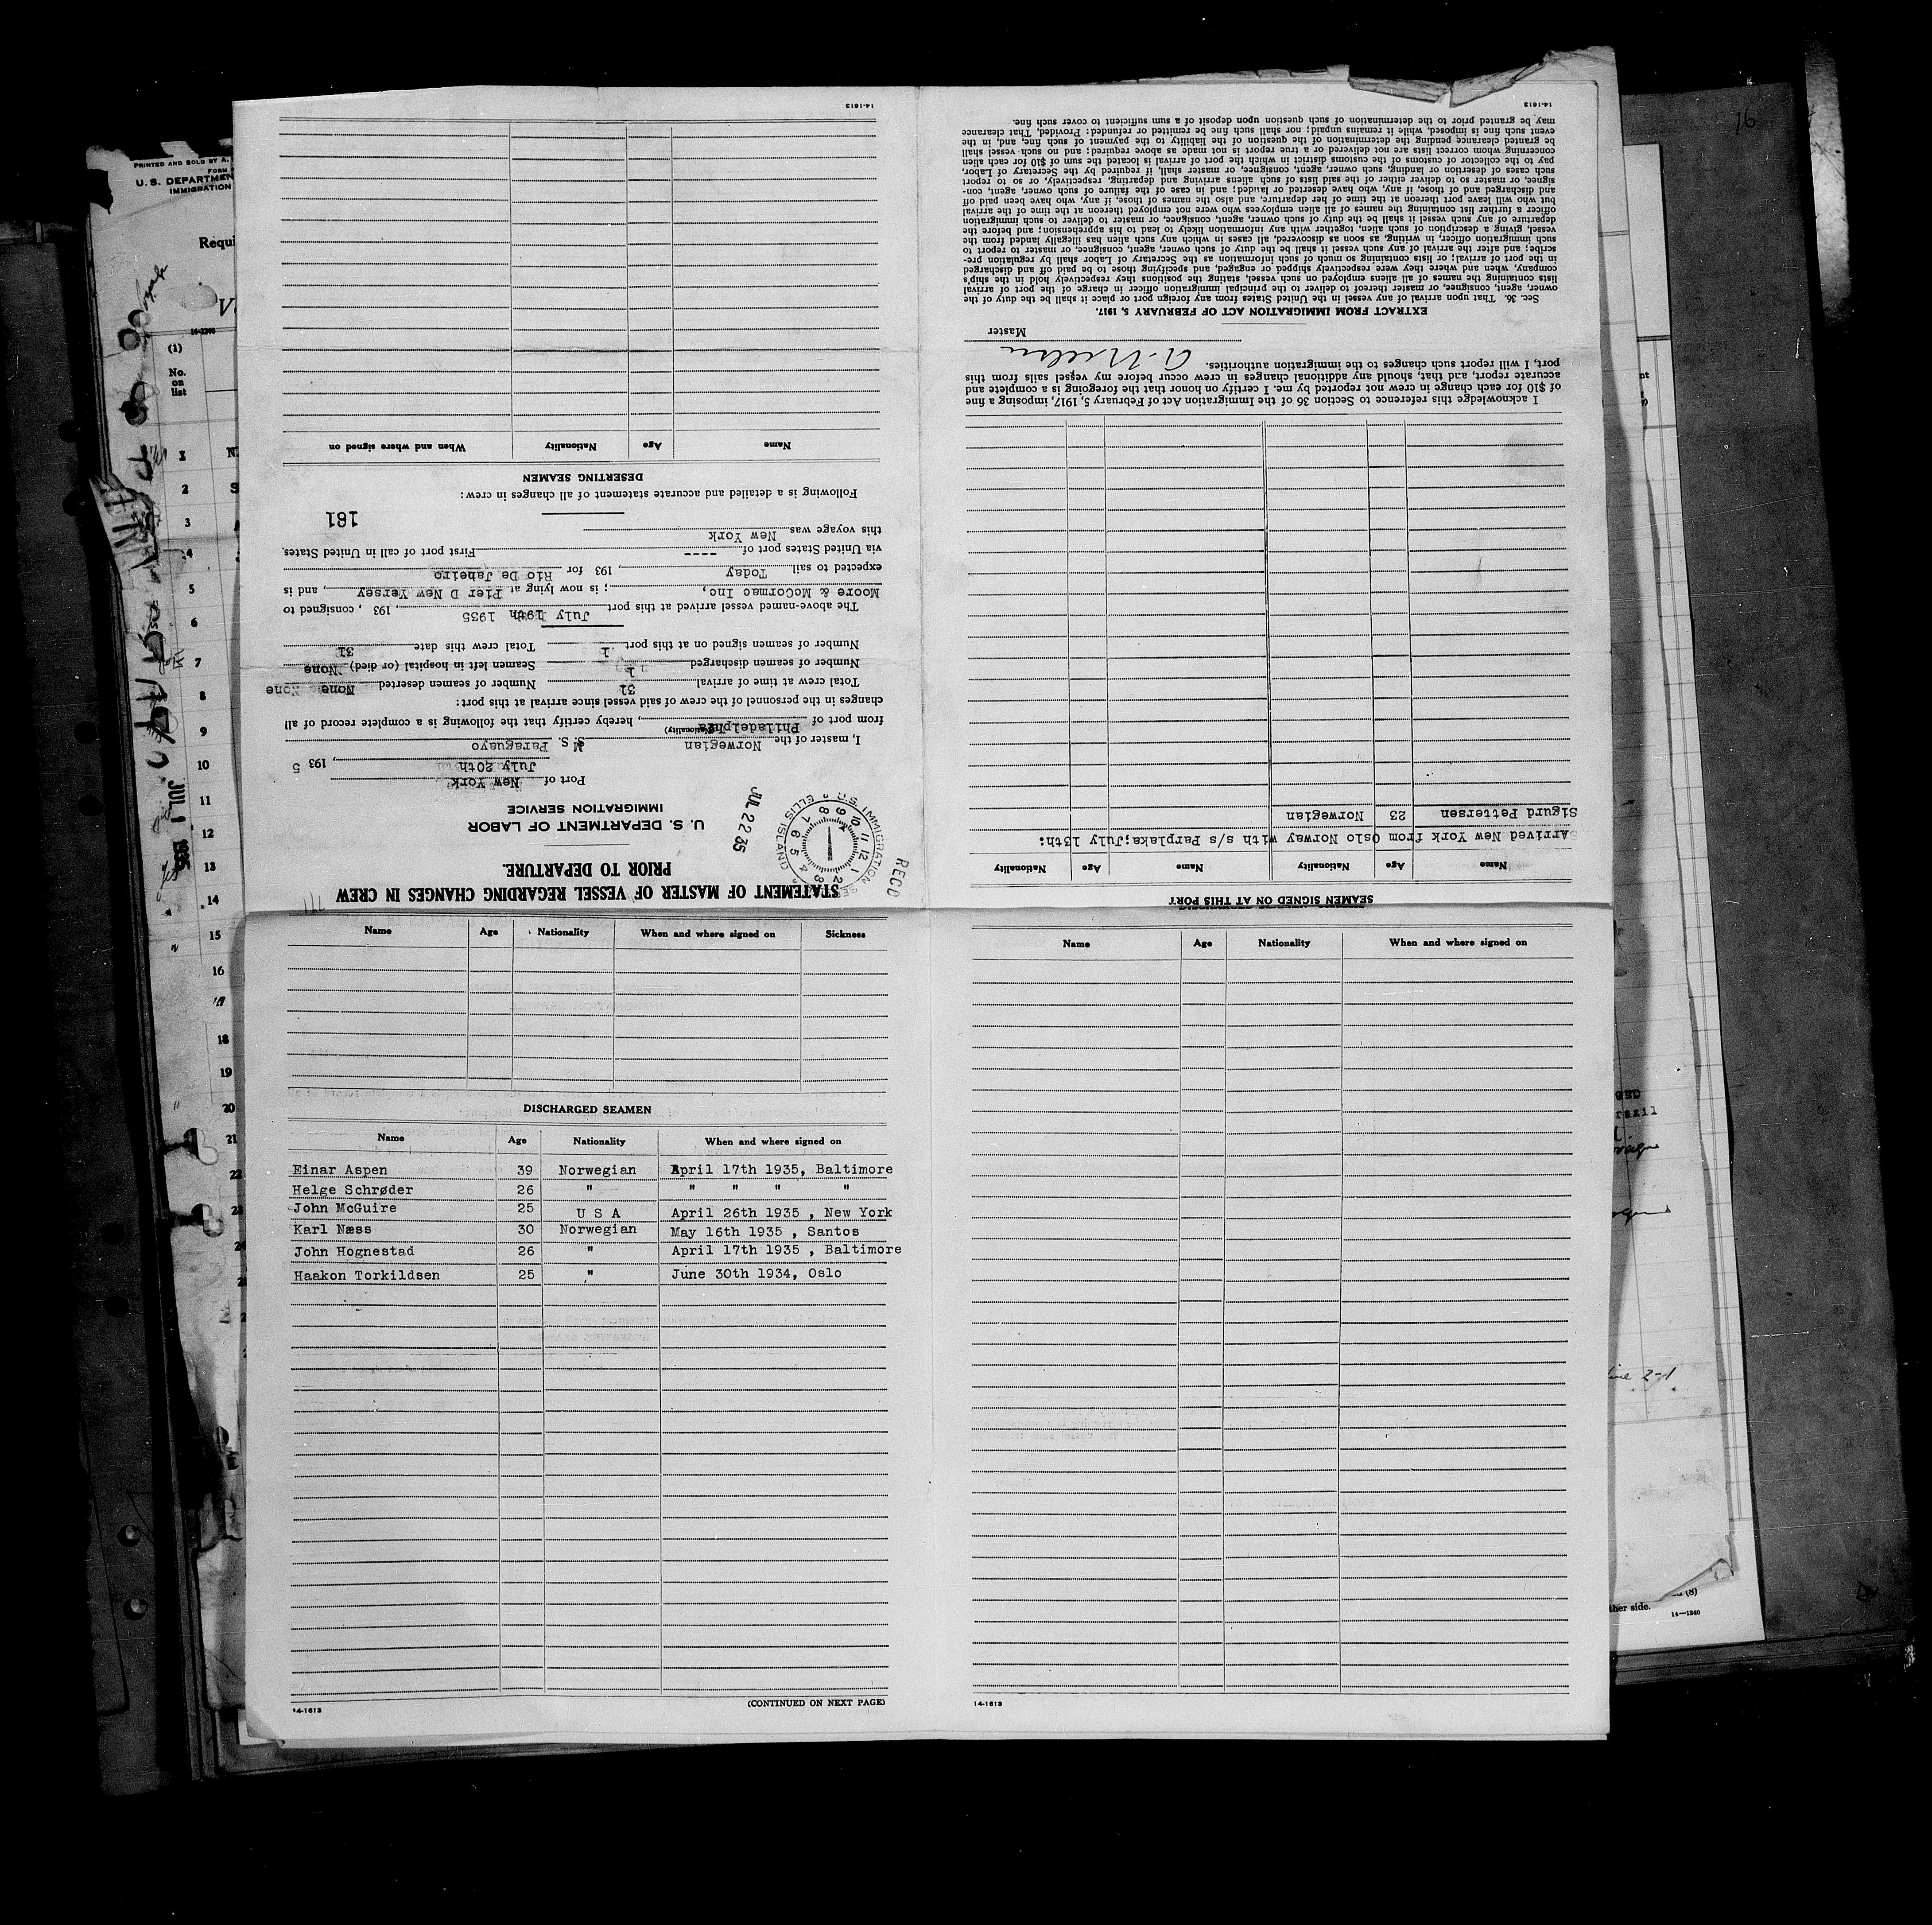 STATEMENT OF MASTER OF VESSEL REGARDING CHANGES IN CREW
PRIOR TO DEPARTURE.
U. S. DEPARTMENT OF LABOR
IMMIGRATION SERVICE
RECD
IMMIGRATION SE
U.S. ELLIS ISLAND
12 1 2 3 4 5 6 7 8 9 10 11
JUL 22 35
Port of New York
July 20th, 193 5
I, master of the Norwegian S. Paraguayo
(Nationality)
from port of Philadelphia, hereby certify that the following is a complete record of all
changes in the personnel of the crew of said vessel since arrival at this port:
Total crew at time of arrival 31 Number of seamen deserted None None
Number of seamen discharged 1 Seamen left in hospital (or died) None
Number of seamen signed on at this port 1 Total crew this date 31
The above-named vessel arrived at this port July 19th 1935, 193 , consigned to
Moore & McCormac Inc, ; is now lying at Pier D New Yersey, and is
expected to sail Today, 193 for Rio De Janeiro
via United States port of ---- First port of call in United States
this voyage was New York
161
Following is a detailed and accurate statement of all changes in crew:
DESERTING SEAMEN
Name Age Nationality When and where signed on
14-1613
SEAMEN SIGNED ON AT THIS PORT
Name Age Nationality Name Age Nationality
Arrived New York from Oslo Norway with s/s Parplaka;July 13th:
Sigurd Pettersen 23 Norwegian
I acknowledge this reference to Section 36 of the Immigration Act of February 5, 1917, imposing a fine
of $10 for each change in crew not reported by me. I certify on honor that the foregoing is a complete and
accurate report, and that, should any additional changes in crew occur before my vessel sails from this
port, I will report such changes to the immigration authorities.
Master
EXTRACT FROM IMMIGRATION ACT OF FEBRUARY 5, 1917.
Sec. 36. That upon arrival of any vessel in the United States from any foreign port or place it shall be the duty of the
owner, agent, consignee, or master thereof to deliver to the principal immigration officer in charge of the port of arrival
lists containing the names of all aliens employed on such vessel, stating the positions they respectively hold in the ship's
company, when and where they were respectively shipped or engaged, and specifying those to be paid off and discharged
in the port of arrival; or lists containing so much of such information as the Secretary of Labor shall by regulation pre-
scribe; and after the arrival of any such vessel it shall be the duty of such owner, agent, consignee, or master to report to
such immigration officer, in writing, as soon as discovered, all cases in which any such alien has illegally landed from the
vessel, giving a description of such alien, together with any information likely to lead to his apprehension; and before the
departure of any such vessel it shall be the duty of such owner, agent, consignee, or master to deliver to such immigration
officer a further list containing the names of all alien employees who were not employed thereon at the time of the arrival
but who will leave port thereon at the time of her departure, and also the names of those, if any, who have been paid off
and discharged and of those, if any, who have deserted or landed; and in case of the failure of such owner, agent, con-
signee, or master so to deliver either of the said lists of such aliens arriving and departing, respectively, or so to report
such cases of desertion or landing, such owner, agent, consignee, or master shall, if required by the Secretary of Labor,
pay to the collector of customs of the customs district in which the port of arrival is located the sum of $10 for each alien
concerning whom correct lists are not delivered or a true report is not made as above required; and no such vessel shall
be granted clearance pending the determination of the question of the liability to the payment of such fine, and, in the
event such fine is imposed, while it remains unpaid; nor shall such fine be remitted or refunded: Provided, That clearance
may be granted prior to the determination of such question upon deposit of a sum sufficient to cover such fine.
14-1613
Name Age Nationality When and where signed on Sickness
DISCHARGED SEAMEN
Name Age Nationality When and where signed on
Einar Aspen 39 Norwegian April 17th 1935, Baltimore
Helge Schrøder 26 " " " " "
John McGuire 25 U S A April 26th 1935 , New York
Karl Næss 30 Norwegian May 16th 1935 , Santos
John Hognestad 26 " April 17th 1935 , Baltimore
Haakon Torkildsen 25 " June 30th 1934, Oslo
(CONTINUED ON NEXT PAGE)
14-1613
Name Age Nationality When and where signed on
14-1613
PRINTED AND SOLD BY A.
FORM
U. S. DEPARTMEN
IMMIGRATION
Requi
14-1240
(1)
No.
on
list
1
2
3
4
5
6
7
8
9
10
11
12
13
14
15
16
17
18
19
20
21
22
23
JUL 1 1935
16
ther side.
14-1240